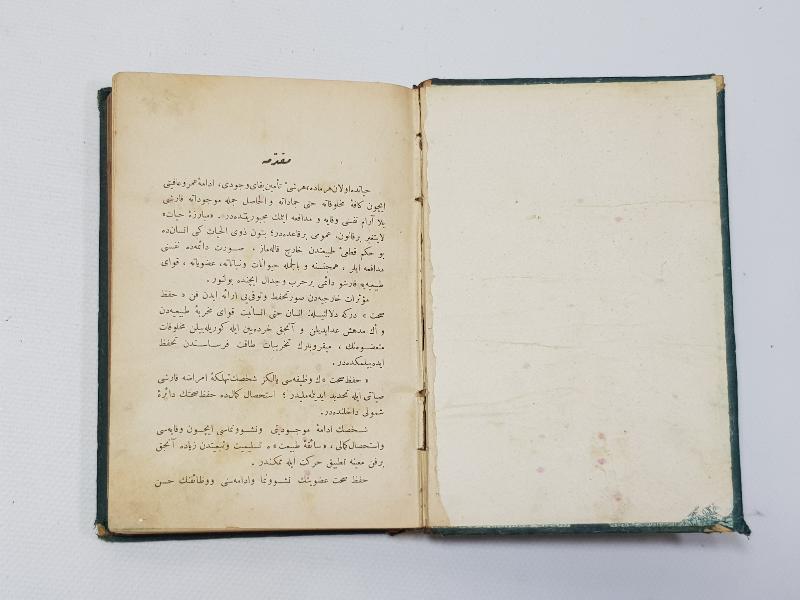 مقدّمه
حیاتده اولان هر ماده، هر شیء تأمین بقای وجودی، ادامهٔ عمر و عافیتی
ایچون كافهٔ مخلوقاته حتی جماداته و الحاصل جمله موجوداته قارشی
بلا آرام نفسنی وقایه و مدافعه ایتمك مجبوریتنده‌در. «مبارزهٔ حیات»
لایتغیر بر قانون، عمومی بر قاعده‌در؛ بتون ذوی الحیات كی انسان‌ده
بو حكم قطعیٔ طبیعتدن خارج قاله‌ماز، صورت دائمه‌ده نفسنی
مدافعه ایلر، همجنسنه و بالجمله حیوانات ونباتاته، عضویاته، قوای
طبیعیه‌یه قارشو دائمی بر حرب وجدال ایچنده بولنور.
مؤثرات خارجیه‌دن صورتحفظ وتوقی‌یی ارائه ایدن فن «حفظ
صحت» دركه دلالتیله؛ انسان حتی انسانیت قوای مخربهٔ طبیعیه‌دن
و اڭ مدهش عدایدیلن و آنجق خرده‌بین ایله كوریله‌بیلن مخلوقات
متعضونه‌نك، میقروبلرك تخریبات طاقت فرساسندن تحفظ
ایده‌بیلمكده‌در.
«حفظ صحت»ك وظیفه‌سی یالكز شخصك تهلكهٔ امراضه قارشی
صیانتی ایله تحدید ایدیله‌ملیدر؛ استحصال كمال‌ده حفظ صحتك دائرهٔ
شمولی داخلنده‌در.
شخصك ادامهٔ موجودیتی ونشوونماسی ایچون وقایه‌سی
واستحصال كمالی، «سائقهٔ طبیعت»ه تسلیمیت وتبعیتدن زیاده آنجق
بر فن معینه تطبیق حركت ایله ممكندر.
حفظ صحت عضویتك نشوونما وادامه‌سنی ووظائفنك حسن